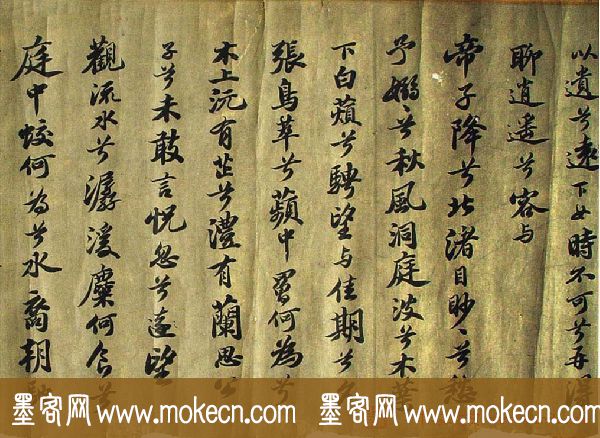 以遺兮遠下女時不可兮再
聊逍遥兮容与
帝子降兮北渚目眇〻兮
予嫋兮秋風洞庭波兮木葉
下白薠兮騁望与佳期兮
張鳥萃兮蘋中罾何為兮
木上沅有芷兮澧有蘭思公
子兮未敢言怳忽兮遠望
觀流水兮潺湲麋何食兮
庭中蛟何為兮水裔朝
墨客网 www.mokecn.com 墨客网 www.mokecn.com